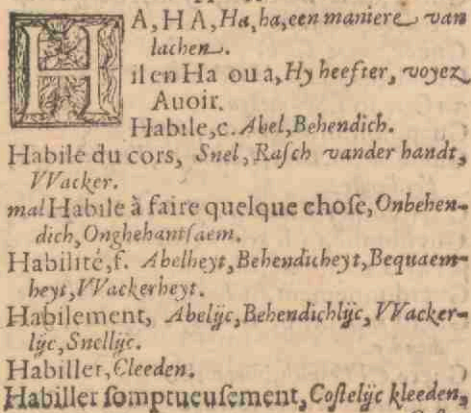 HA, HA, Ha, ha, een maniere van
lachen.
il en Ha ou a, Hy heefter, voyez
Avoir.
Habile, c. Abel, Behendich.
Habile du cors, Snel, Rasch vander handt,
VVacker.
mal Habile à faire quelque chose, Onbehen-
dich, Onghehantsaem.
Habilité, f. Abelheyt, Behendicheyt, Bequaem-
heyt, VVackerheyt.
Habilement, Abelijc, Behendichlijc, VVacker-
lijc, Snellijc.
Habiller, Cleeden.
Habiller somptueusement, Costelijc kleeden,